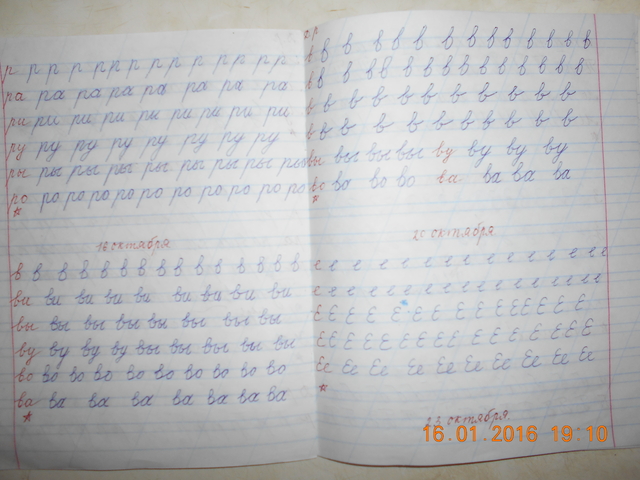 р р р р р р р р р р р р р р р
ра ра ра ра ра ра ра ра
ри ри ри ри ри ри ри ри ри
ру ру ру ру ру ру ру ру
ры ры ры ры ры ры ры ры ры
ро ро ро ро ро ро ро ро ро ро ро
16 октября
в в в в в в в в в в в в в в в
ви ви ви ви ви ви ви ви ви
вы вы вы вы вы вы вы вы
ву ву ву ву вы вы вы вы вы
во во во во во во во во во во
ва ва ва ва ва ва ва ва
в в в в в в в в в в в в в в
в в в в в в в в в в в в в в
в в в в в в в в в в
в в в в в в в в в в
вы вы вы вы ву ву ву ву
во во во во ва ва ва ва
20 октября
е е е е е е е е е е е е е е е
е е е е е е е е е е е е е е е
Е Е Е Е Е Е Е Е Е Е Е Е
Е Е Е Е Е Е Е Е Е Е Е Е
Ее Ее Ее Ее Ее Ее Ее Ее Ее
23 октября
16.01.2016 19:10